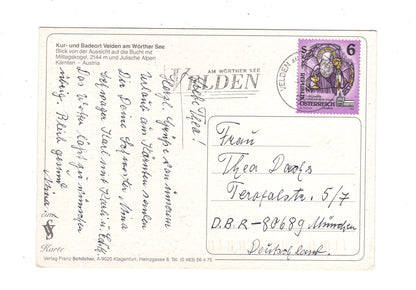 Kur- und Badeort Velden am Wörther See
Blick von der Aussicht auf die Bucht mit
Mittagskogel, 2144 m und Julische Alpen
Kärnten – Austria
AM WÖRTHER SEE
VELDEN
VELDEN
6
REPUBLIK
ÖSTERREICH
Liebe Thea!
Herzl. Grüße von unserem
Urlaub aus Kärnten senden
Dir Deine Schwester Anna
Schwager Karl mit
Das Wetter läßt zu wünschen
übrig. Bleib gesund
Anna
Frau
Thea
5/7
D.B.R - 80689 München
Deutschland.
Eine
Karte
Verlag Franz Schilcher, A-9020 Klagenfurt, Heinzgasse 8, Tel. (0 463) 56 4 73